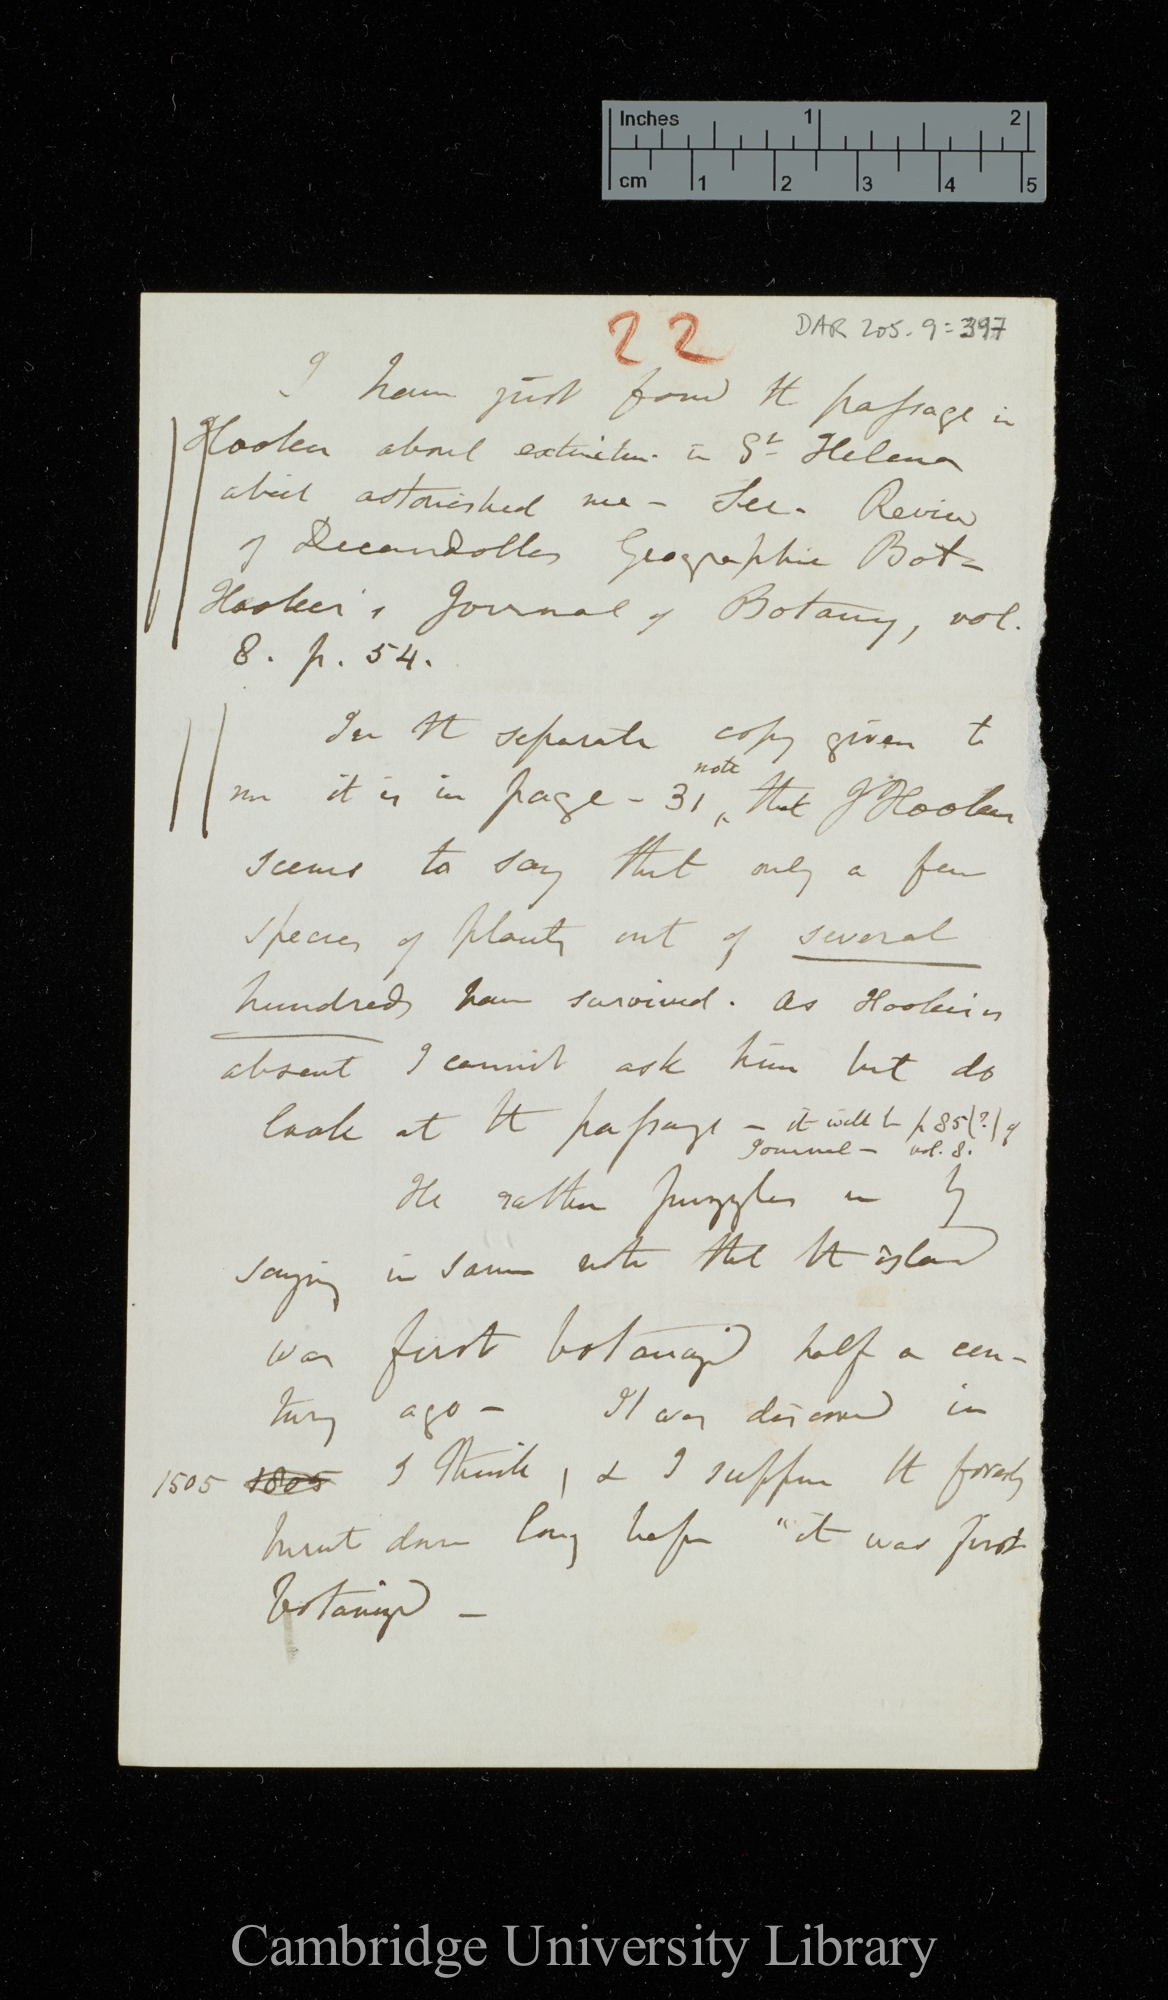 Inches 1 2
cm 1 2 3 4 5
22
DAR 205.9:397
I have just found the passage in
Hooker about extinction in St Helena
which astonished me – See. Review
of Decandolles Geographie Bot–
Hooker's Journal of Botany, vol.
8. p. 54.
In the separate copy given to
note
me it is in page – 31 that J Hooker
seems to say that only a few
species of plants out of several
hundreds have survived. As Hooker is
absent I cannot ask him but do
look at the passage – it will be p 85(?) of
Journal – vol. 8.
He rather puzzles me by
saying in same note that the island
was first botanized half a cen-
tury ago – It was discovered in
1505 1805 I think, & I suppose the forests
burnt down long before "it was first
botanized –
Cambridge University Library